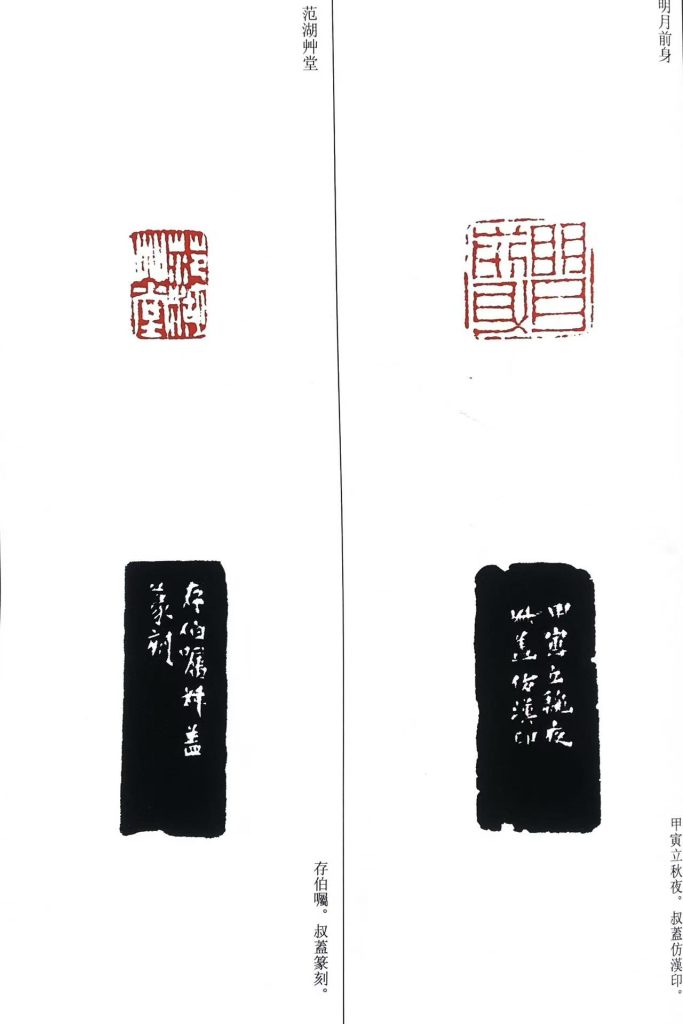 明月前身
明月
前身
甲寅立秋夜
叔蓋仿漢印
甲寅立秋夜。叔蓋仿漢印。
范湖艸堂
范湖
艸堂
存伯囑叔蓋
篆刻
存伯囑。叔蓋篆刻。